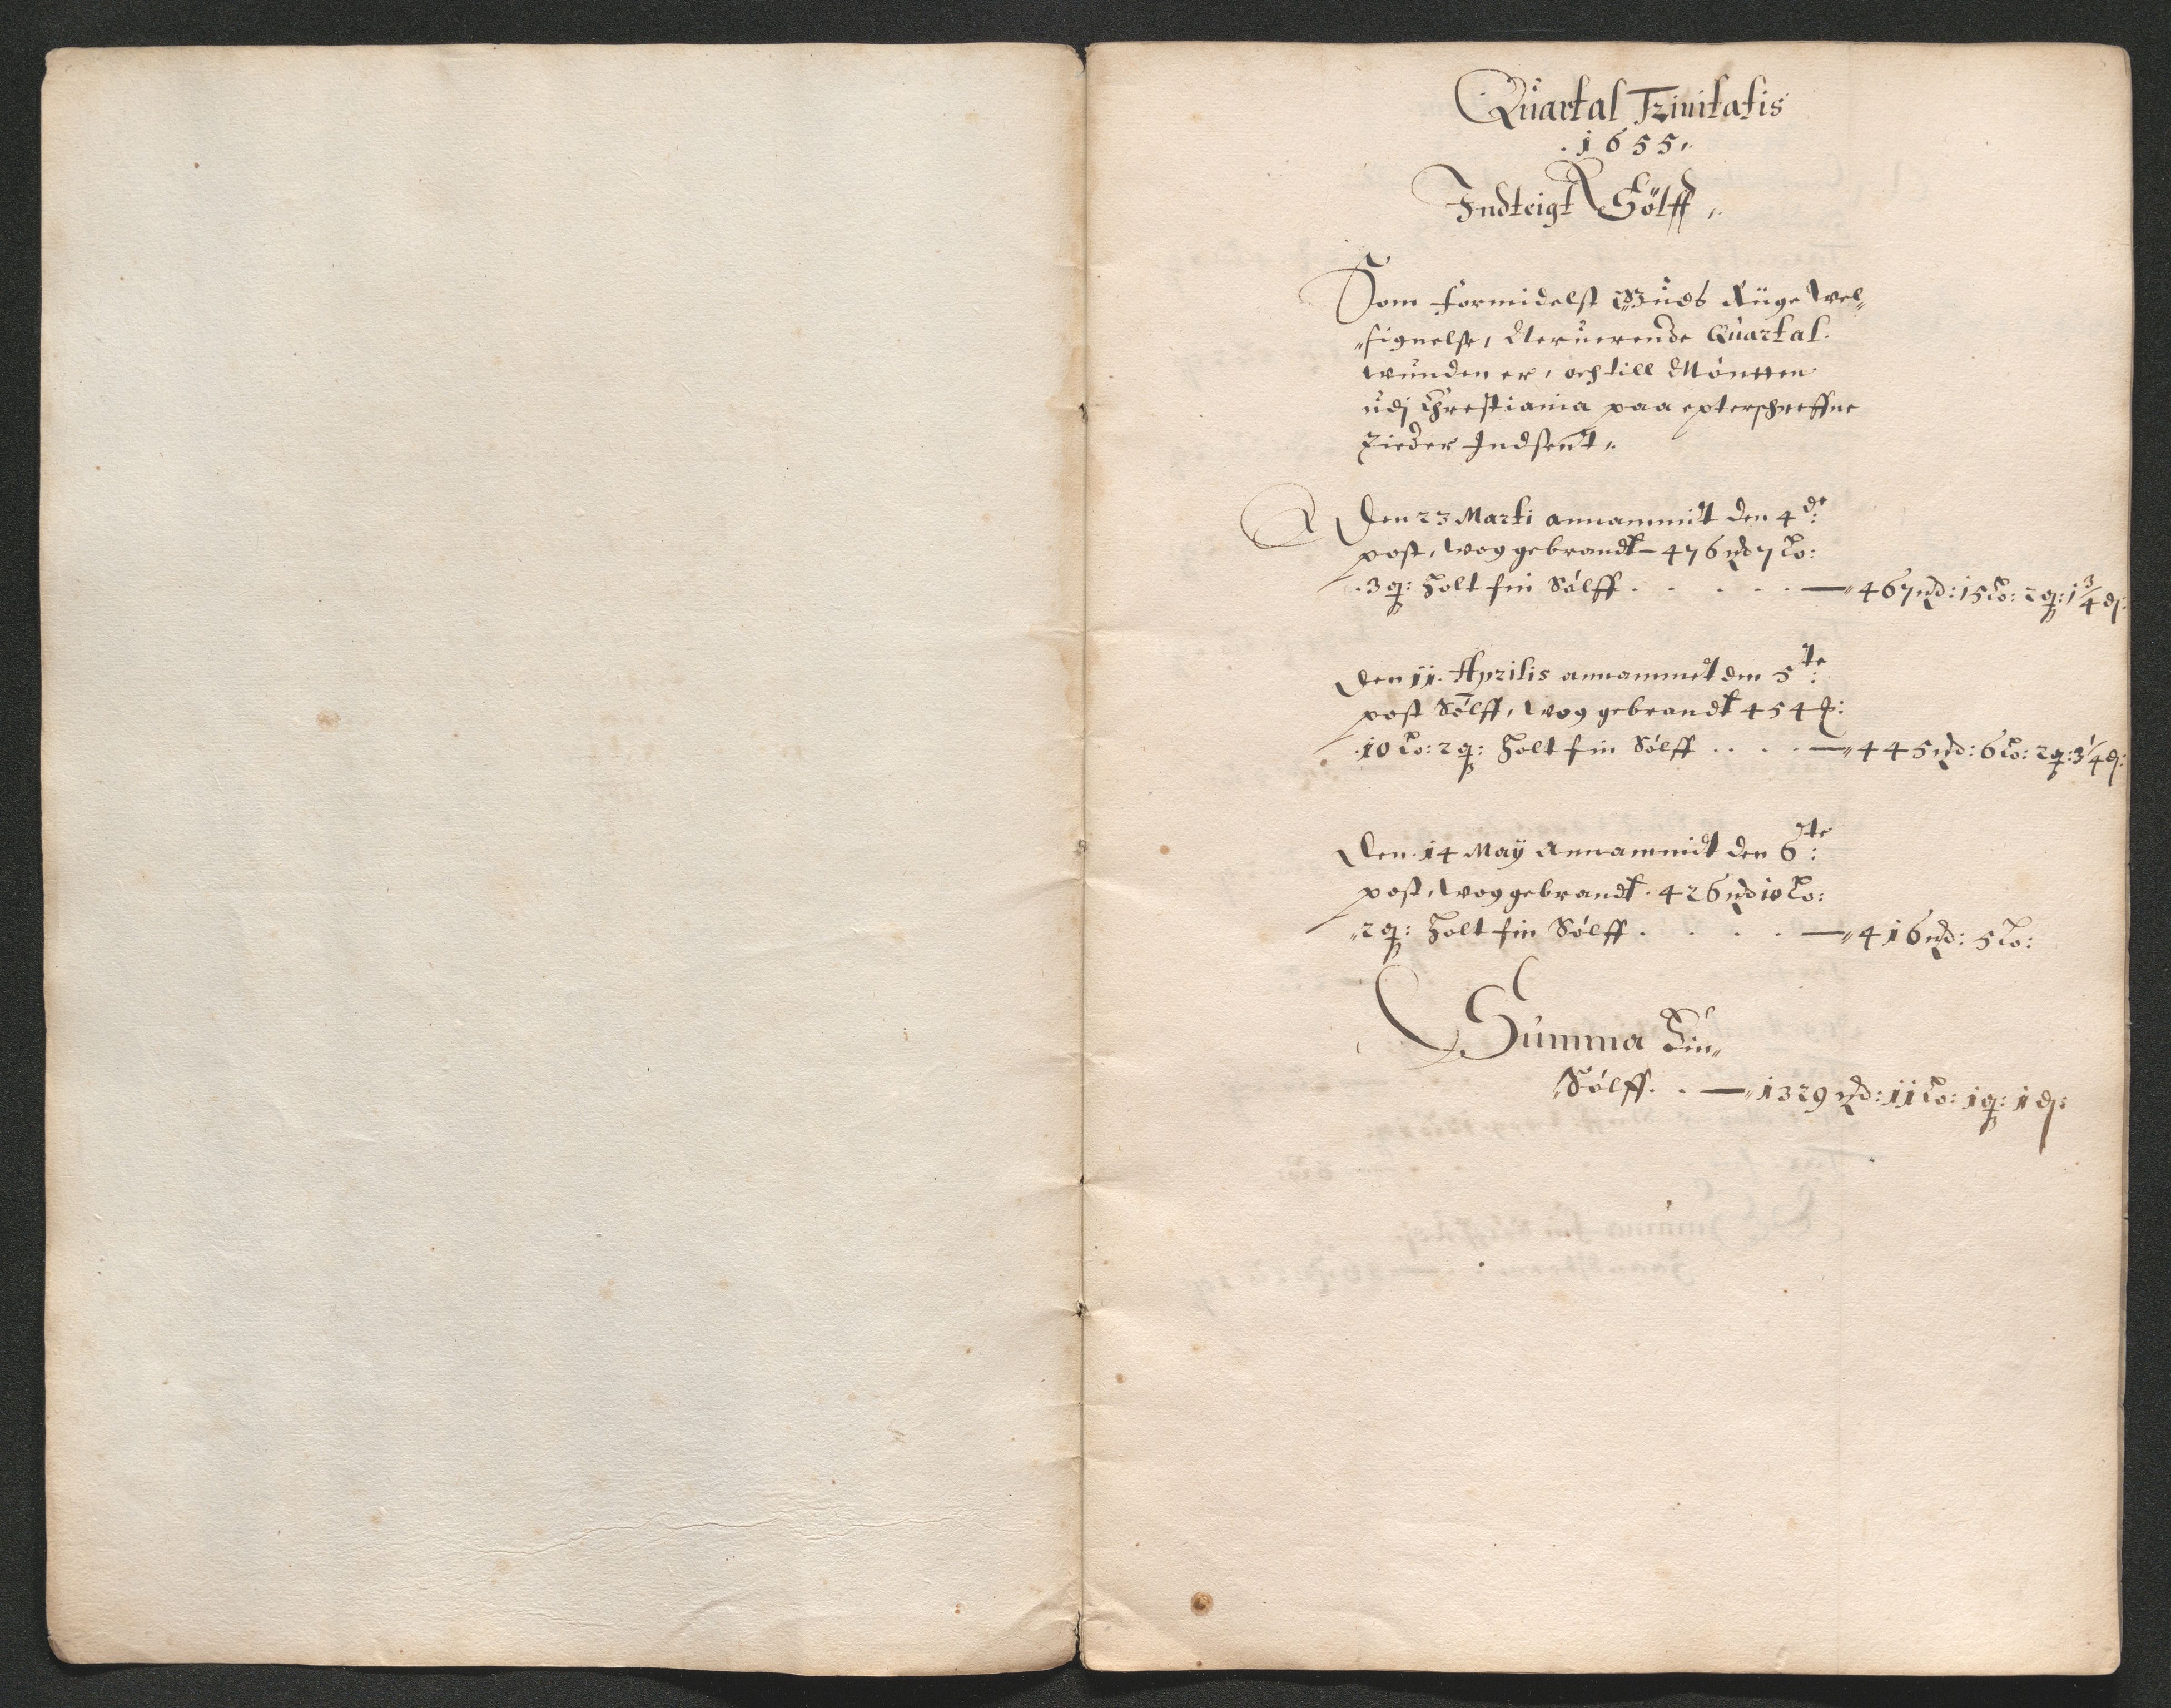 Quartal Trinitatis
. 1655 ..
Indteigt Sölff ..
Som formidelst Guds Rüge Wel„
„signelse, Neruerende Quartal.
wunden er, och till Mönten
udj Chrestiania paa epterschreffne
Tieder Indsent ..
Den 23 Marti annammit den 4de:
post, wog gebrandt – 476 md 7 Lo:
. 3 q: holt fin Sölff . . . . . — „ 467 md: 15 Lo: 2 q: 1 3/4 d:
Den 11. Aprilis annammet den 5te:
post Sölff, wog gebrandt 454 m:
. 10 Lo: 2 q: holt fin Sölff . . . . — „ 445 md: 6 Lo: 2 q: 3 1/4 d:
Den . 14 Maÿ Annammit den 6te:
post, wog gebrandt . 426 md 10 Lo:
„ 2 q: holt fin Sölff . . . . — „ 416 md: 5 Lo:
Summa Fin„
„Sölff . . — „ 1329 md: 11 Lo: 1 q: 1 d: